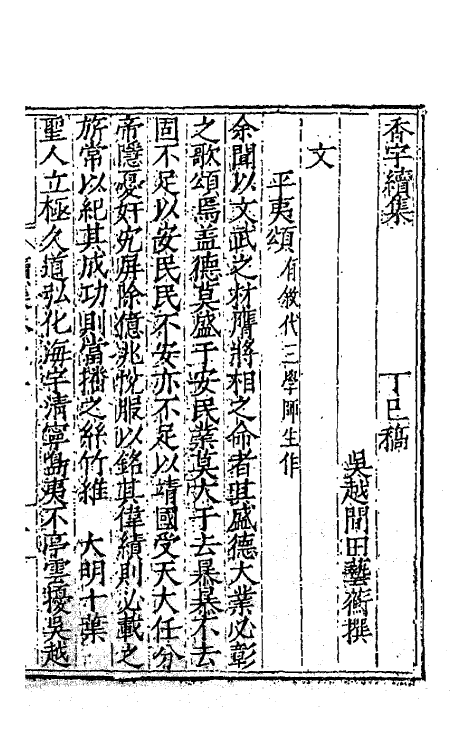 香宇續集　丁巳稿
吳越間田藝蘅撰
文
平夷頌有敘代三學師生作
余聞以文武之材膺將相之命者其盛德大業必彰
之歌頌焉盖德莫盛于安民業莫大于去暴暴不去
固不足以安民民不安亦不足以靖國受天大任分
帝隱憂奸宄屏除億兆悅服以銘其偉績則必載之
旂常以紀其成功則當播之絲竹維　大明十葉
聖人立極久道弘化海宇清寧島夷不停雲擾吳越